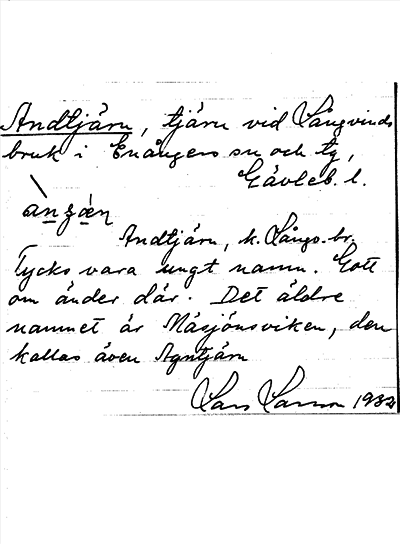 Andtjärn, tjärn vid Långvinds
bruk i Enångers sn och tg,
Gävleb. l.
Andtjärn, k. Långv. br.
Tycks vara ungt namn. Gott
om änder där. Det äldre
namnet är Måsjönsviken, den
kallas även Agntjärn
Lars Larsson 1932